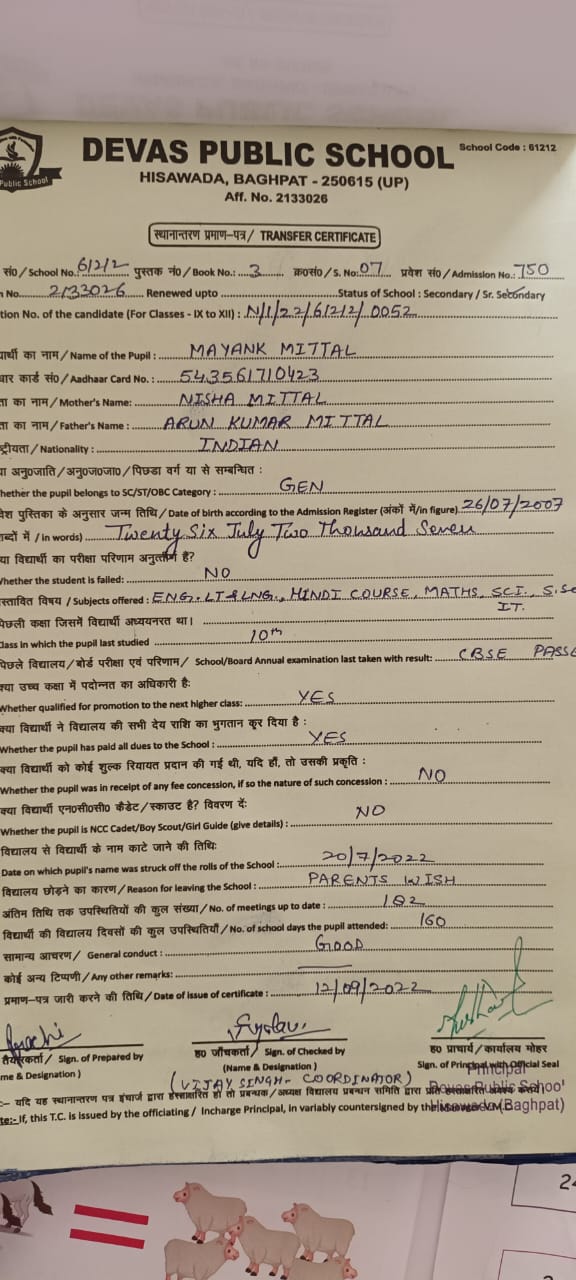 Public School
DEVAS PUBLIC SCHOOL
School Code : 61212
HISAWADA, BAGHPAT - 250615 (UP)
Aff. No. 2133026
स्थानान्तरण प्रमाण-पत्र/ TRANSFER CERTIFICATE
सं0/School No. 61212 पुस्तक नं0/Book No.: 3 क्र0सं0/S. No. 07 प्रवेश सं0/Admission No.: 750
No. 2133026 Renewed upto Status of School : Secondary / Sr. Secondary
tion No. of the candidate (For Classes - IX to XII) : N/1/22/61212/0052
र्थी का नाम/Name of the Pupil : MAYANK MITTAL
धार कार्ड सं0/Aadhaar Card No. : 543561710423
ता का नाम/Mother's Name: NISHA MITTAL
ता का नाम/Father's Name : ARUN KUMAR MITTAL
ष्ट्रीयता/Nationality : INDIAN
या अनु0जाति/अनु0ज0जा0/पिछडा वर्ग या से सम्बन्धित :
hether the pupil belongs to SC/ST/OBC Category : GEN
वेश पुस्तिका के अनुसार जन्म तिथि/Date of birth according to the Admission Register (अंकों में/in figure). 26/07/2007
ब्दों में /in words) Twenty Six July Two Thousand Seven
या विद्यार्थी का परीक्षा परिणाम अनुत्तीर्ण है?
Whether the student is failed: NO
स्तावित विषय /Subjects offered : ENG. LT & LNG., HINDI COURSE, MATHS, SCI., S.Sc
I.T.
पिछली कक्षा जिसमें विद्यार्थी अध्ययनरत था।
lass in which the pupil last studied 10th
पिछले विद्यालय/बोर्ड परीक्षा एवं परिणाम/ School/Board Annual examination last taken with result: CBSE PASSE
क्या उच्च कक्षा में पदोन्नत का अधिकारी है:
Whether qualified for promotion to the next higher class: YES
क्या विद्यार्थी ने विद्यालय की सभी देय राशि का भुगतान कर दिया है :
Whether the pupil has paid all dues to the School : YES
क्या विद्यार्थी को कोई शुल्क रियायत प्रदान की गई थी, यदि हाँ, तो उसकी प्रकृति :
Whether the pupil was in receipt of any fee concession, if so the nature of such concession : NO
क्या विद्यार्थी एन0सी0सी0 कैडेट/स्काउट है? विवरण दें:
Whether the pupil is NCC Cadet/Boy Scout/Girl Guide (give details) : NO
विद्यालय से विद्यार्थी के नाम काटे जाने की तिथि:
Date on which pupil's name was struck off the rolls of the School : 20/7/2022
विद्यालय छोड़ने का कारण/Reason for leaving the School : PARENTS WISH
अंतिम तिथि तक उपस्थितियों की कुल संख्या/No. of meetings up to date : 182
विद्यार्थी की विद्यालय दिवसों की कुल उपस्थितियाँ/No. of school days the pupil attended: 160
सामान्य आचरण/ General conduct : GOOD
कोई अन्य टिप्पणी/Any other remarks:
प्रमाण-पत्र जारी करने की तिथि/Date of issue of certificate : 12/09/2022
तैयारकर्ता/ Sign. of Prepared by ह0 जाँचकर्ता/ Sign. of Checked by ह0 प्राचार्य/कार्यालय मोहर
me & Designation ) (Name & Designation ) Sign. of Principal with Official Seal
(VIJAY SINGH - COORDINATOR)
Principal
Devas Public School
Hisawada (Baghpat)
:- यदि यह स्थानान्तरण पत्र इंचार्ज द्वारा हस्ताक्षरित हो तो प्रबन्धक/अध्यक्ष विद्यालय प्रबन्धन समिति द्वारा
te:- If, this T.C. is issued by the officiating / Incharge Principal, in variably countersigned by the
24